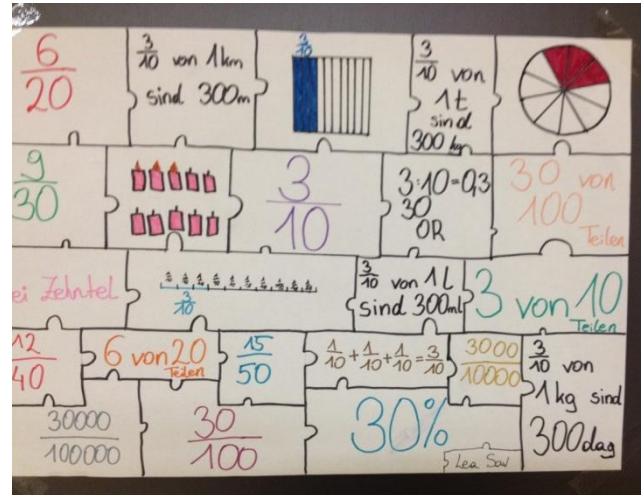 6/20
3/10 von 1km
sind 300m
3/10
3/10 von
1t
sind
300 kg
9/30
3/10
3:10=0,3
30
OR
30 von
100
Teilen
ei Zehntel
3/10
3/10 von 1L
sind 300ml
3 von 10
Teilen
12/40
6 von 20
Teilen
15/50
1/10 + 1/10 + 1/10 = 3/10
3000/10000
3/10 von
1kg sind
300dag
30000/100000
30/100
30%
Lea Sad